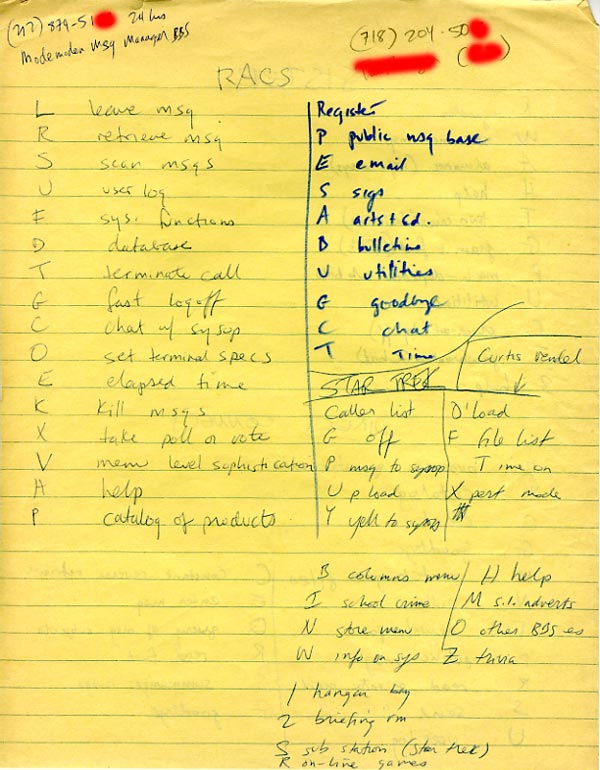 (212) 879-51 24 hrs
Modemden Msg Manager BBS
(718) 204-50
RACS
L leave msg
R retrieve msg
S scan msgs
U user log
F sys. functions
D database
T terminate call
G fast logoff
C chat w/ sysop
O set terminal specs
E elapsed time
K Kill msgs
X take poll or vote
V menu level sophistication
H help
P catalog of products
Register
P public msg base
E email
S sigs
A arts + ed.
B bulletins
U utilities
G goodbye
C chat
T Time
Curtis
STAR TREK
Caller list
G off
P msg to sysop
U pload
Y yell to sysop
D'load
F file list
T ime on
X pert mode
B columns menu
I school crime
N store menu
W info on sys
H help
M s.l. adverts
O other BBS es
Z trivia
1 hangar bay
2 briefing rm
S sub station (star trek)
R on-line games